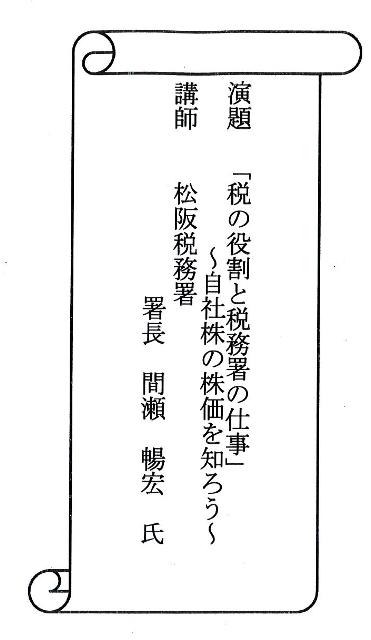 演題 「税の役割と税務署の仕事」
~自社株の株価を知ろう~
講師 松阪税務署
署長 間瀬 暢宏 氏